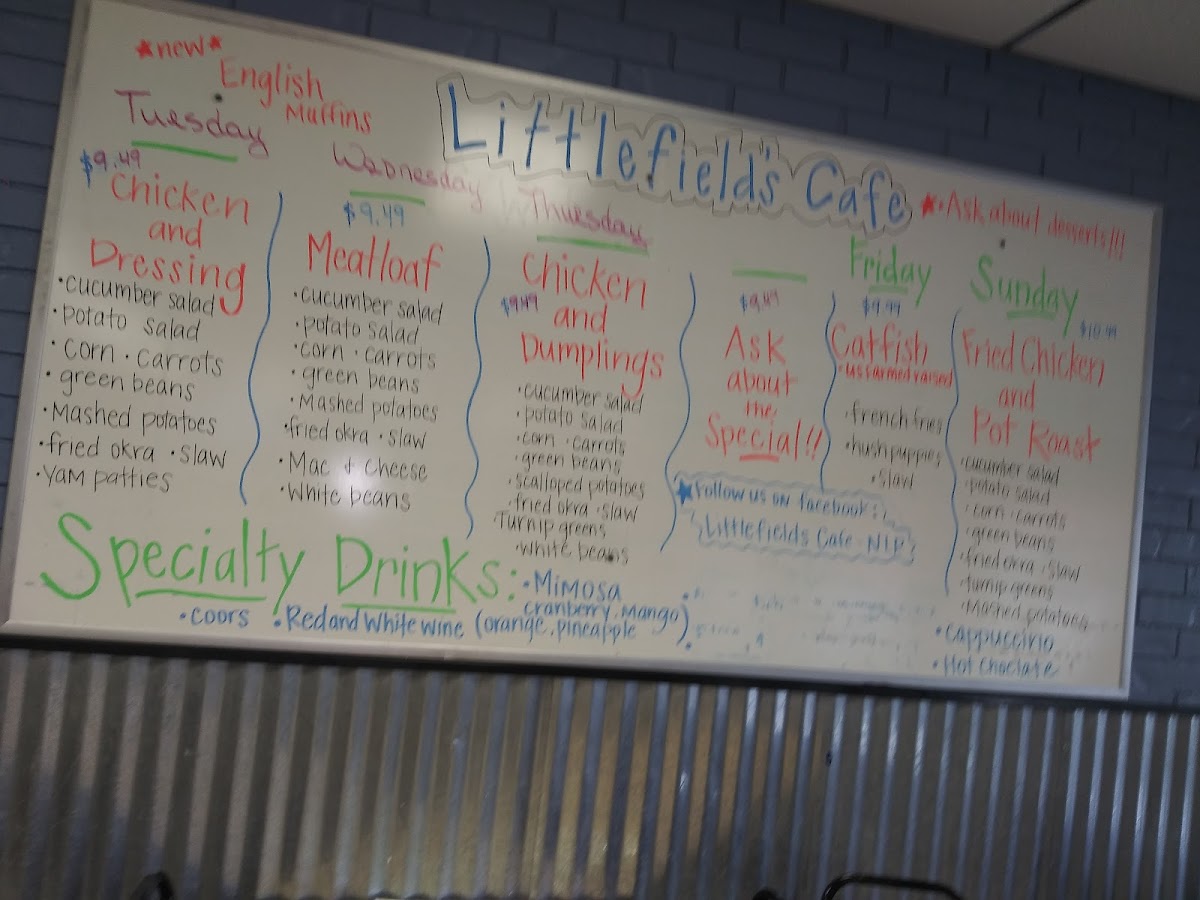 *new*
English
Muffins
Littlefield's Cafe
*Ask about desserts!!!
Tuesday
$9.49
Chicken
and
Dressing
•cucumber salad
•potato salad
•corn •carrots
•green beans
•Mashed potatoes
•fried okra •slaw
•Yam patties
Wednesday
$9.49
Meatloaf
•cucumber salad
•potato salad
•corn •carrots
•green beans
•Mashed potatoes
•fried okra •slaw
•Mac & Cheese
•White beans
Thursday
Chicken
$9.49 and
Dumplings
•cucumber salad
•potato salad
•corn •carrots
•green beans
•scalloped potatoes
•fried okra •slaw
•Turnip greens
•white beans
$9.49
Ask
about
the
Special!!
Friday
$9.99
Catfish
•us farmed raised
•french fries
•hushpuppies
•slaw
Sunday
Fried Chicken
and
Pot Roast
•cucumber salad
•potato salad
•corn •carrots
•green beans
•fried okra •slaw
•turnip greens
•Mashed potatoes
*Follow us on facebook:
Littlefields Cafe
Specialty Drinks:
•Mimosa
cranberry, Mango
•coors •Red and White wine (orange, pineapple)
•cappuccino
•Hot Choclate